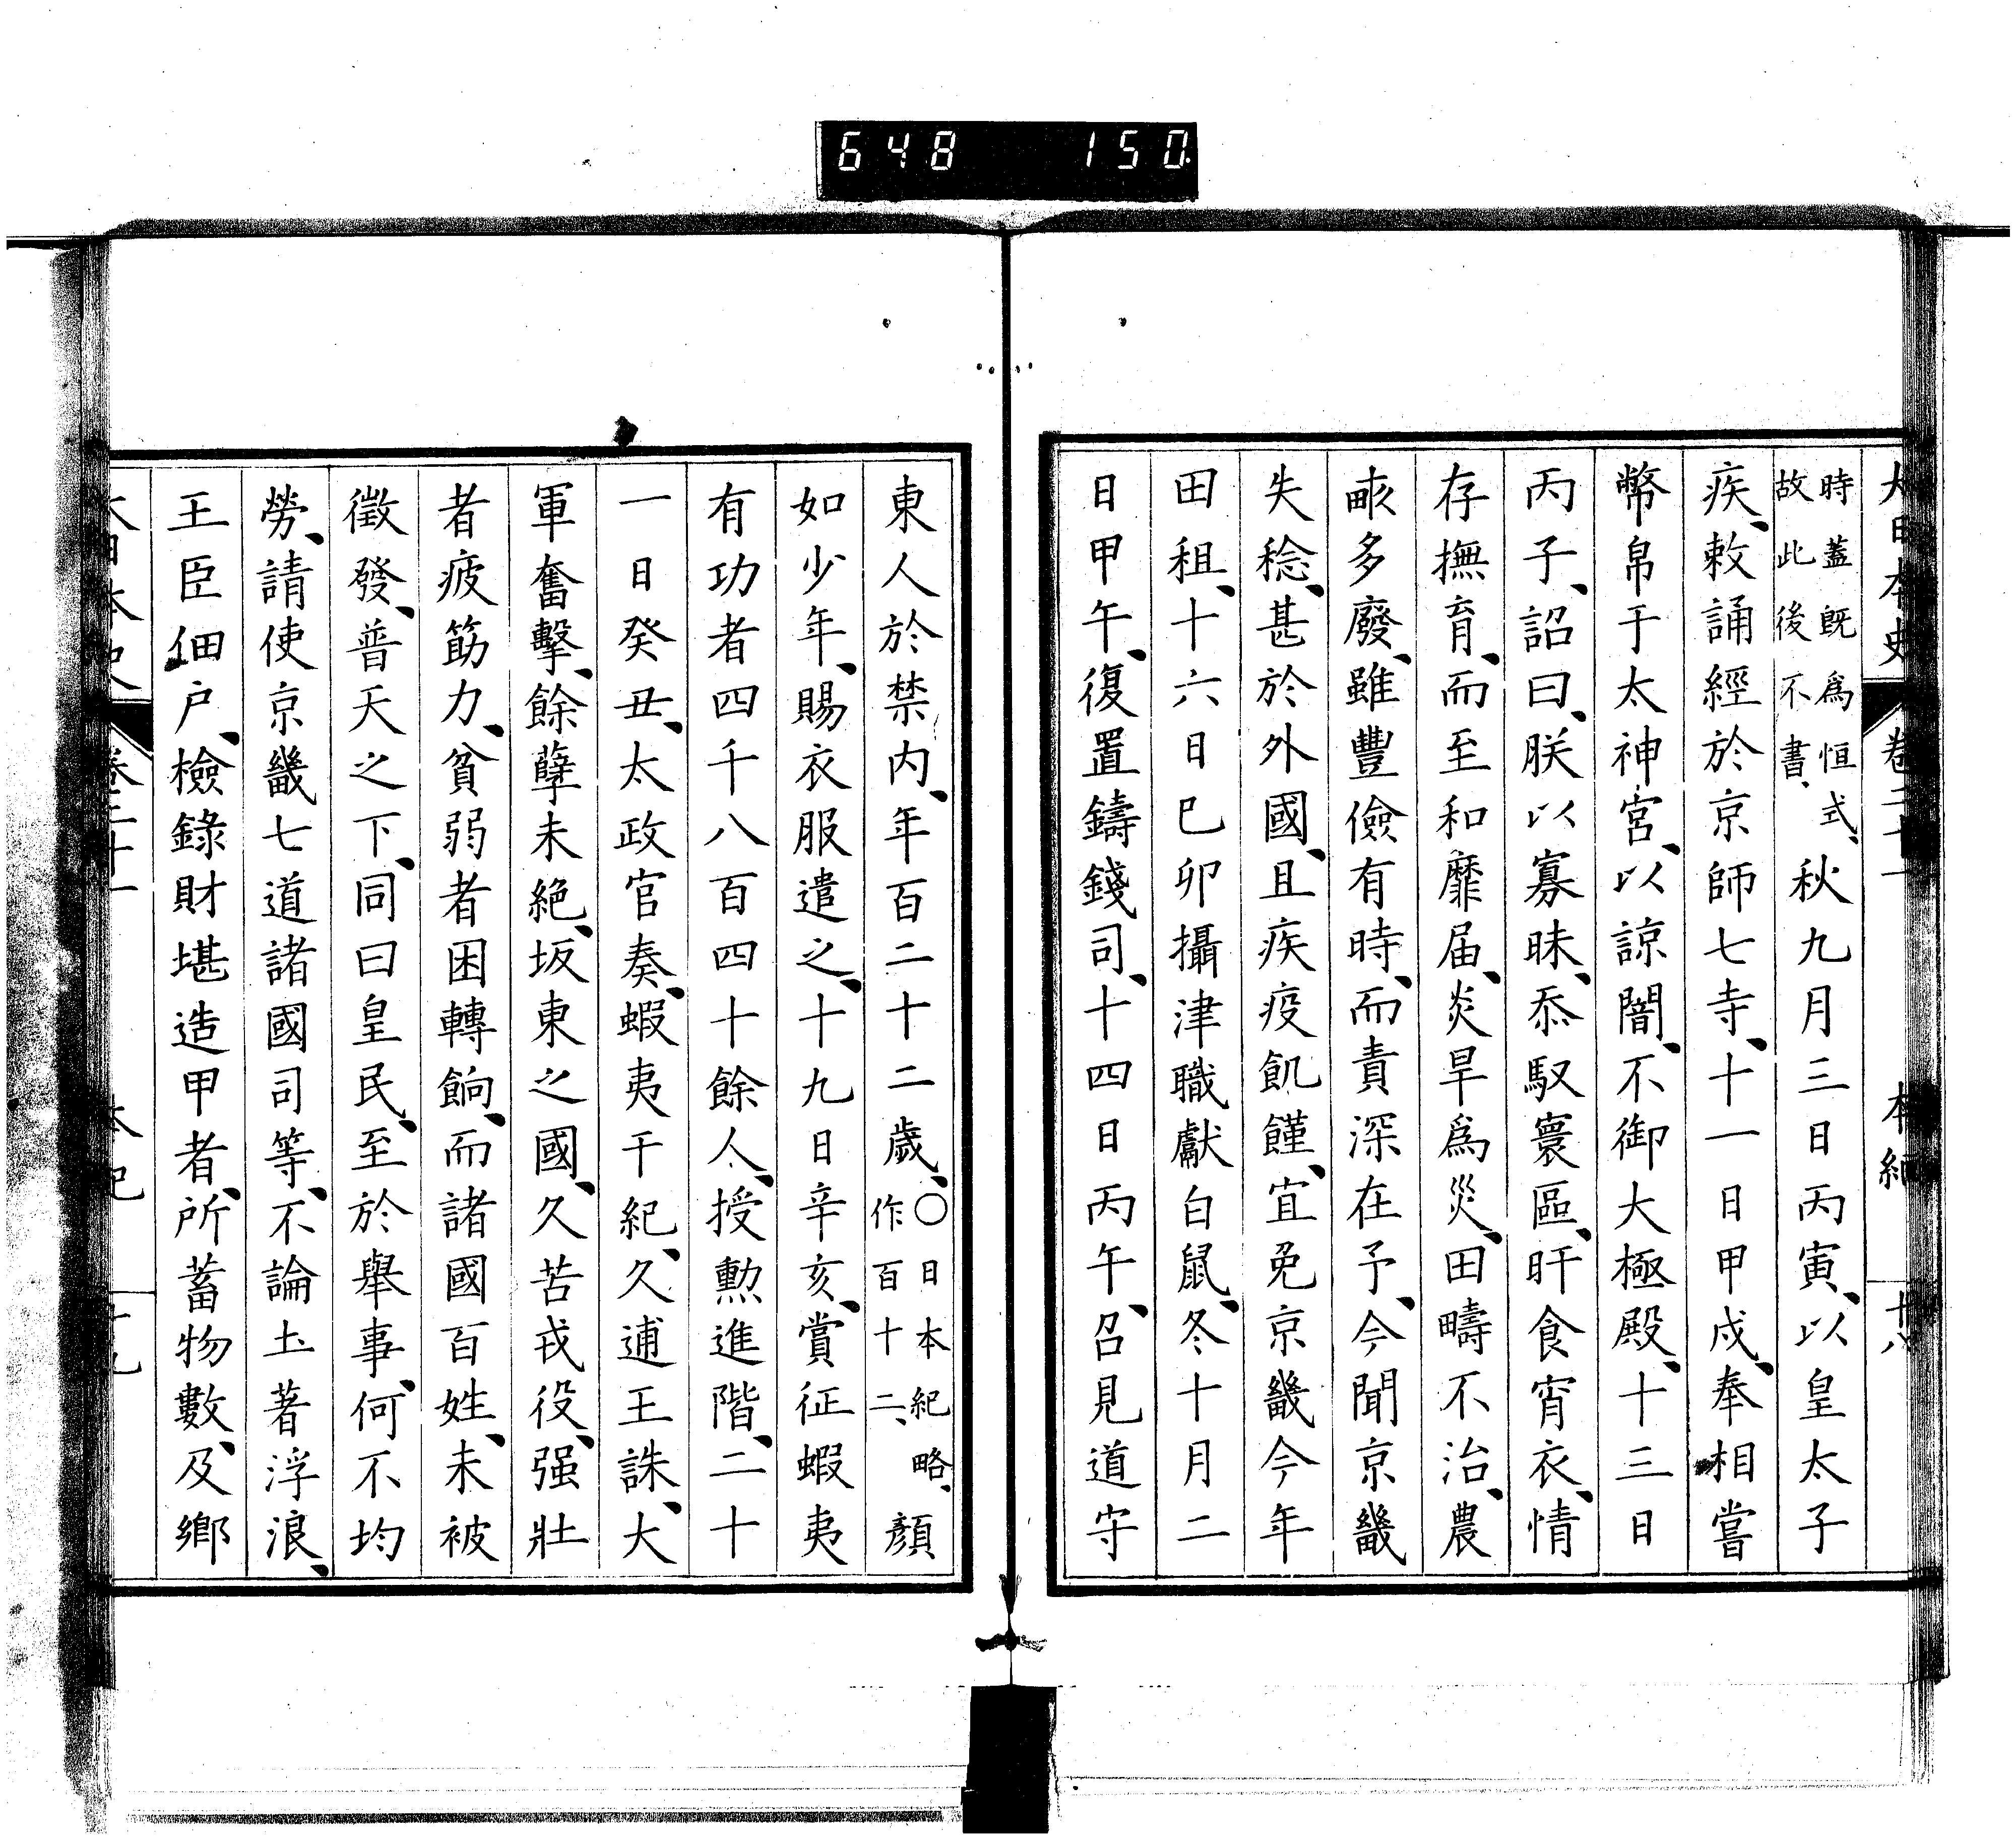 648 150
大日本史 卷二十一 本紀 十八
時蓋既爲恒式、
故此後不書、
秋九月三日丙寅、以皇太子
疾、敕誦經於京師七寺、十一日甲戌、奉相嘗
幣帛于太神宮、以諒闇、不御大極殿、十三日
丙子、詔曰、朕以寡昧、忝馭寰區、旰食宵衣、情
存撫育、而至和靡届、炎旱爲災、田疇不治、農
畝多廢、雖豐儉有時、而責深在予、今聞京畿
失稔、甚於外國、且疾疫飢饉、宜免京畿今年
田租、十六日己卯攝津職獻白鼠、冬十月二
日甲午、復置鑄錢司、十四日丙午、召見道守
東人於禁内、年百二十二歲、
〇日本紀略、
作百十二、
顏
如少年、賜衣服遣之、十九日辛亥、賞征蝦夷
有功者四千八百四十餘人、授勳進階、二十
一日癸丑、太政官奏、蝦夷干紀、久逋王誅、大
軍奮擊、餘孽未絶、坂東之國、久苦戎役、强壯
者疲筋力、貧弱者困轉餉、而諸國百姓、未被
徵發、普天之下、同曰皇民、至於舉事、何不均
勞、請使京畿七道諸國司等、不論土著浮浪、
王臣佃户、檢錄財堪造甲者、所蓄物數、及鄉
大日本史 卷二十一 本紀 十九